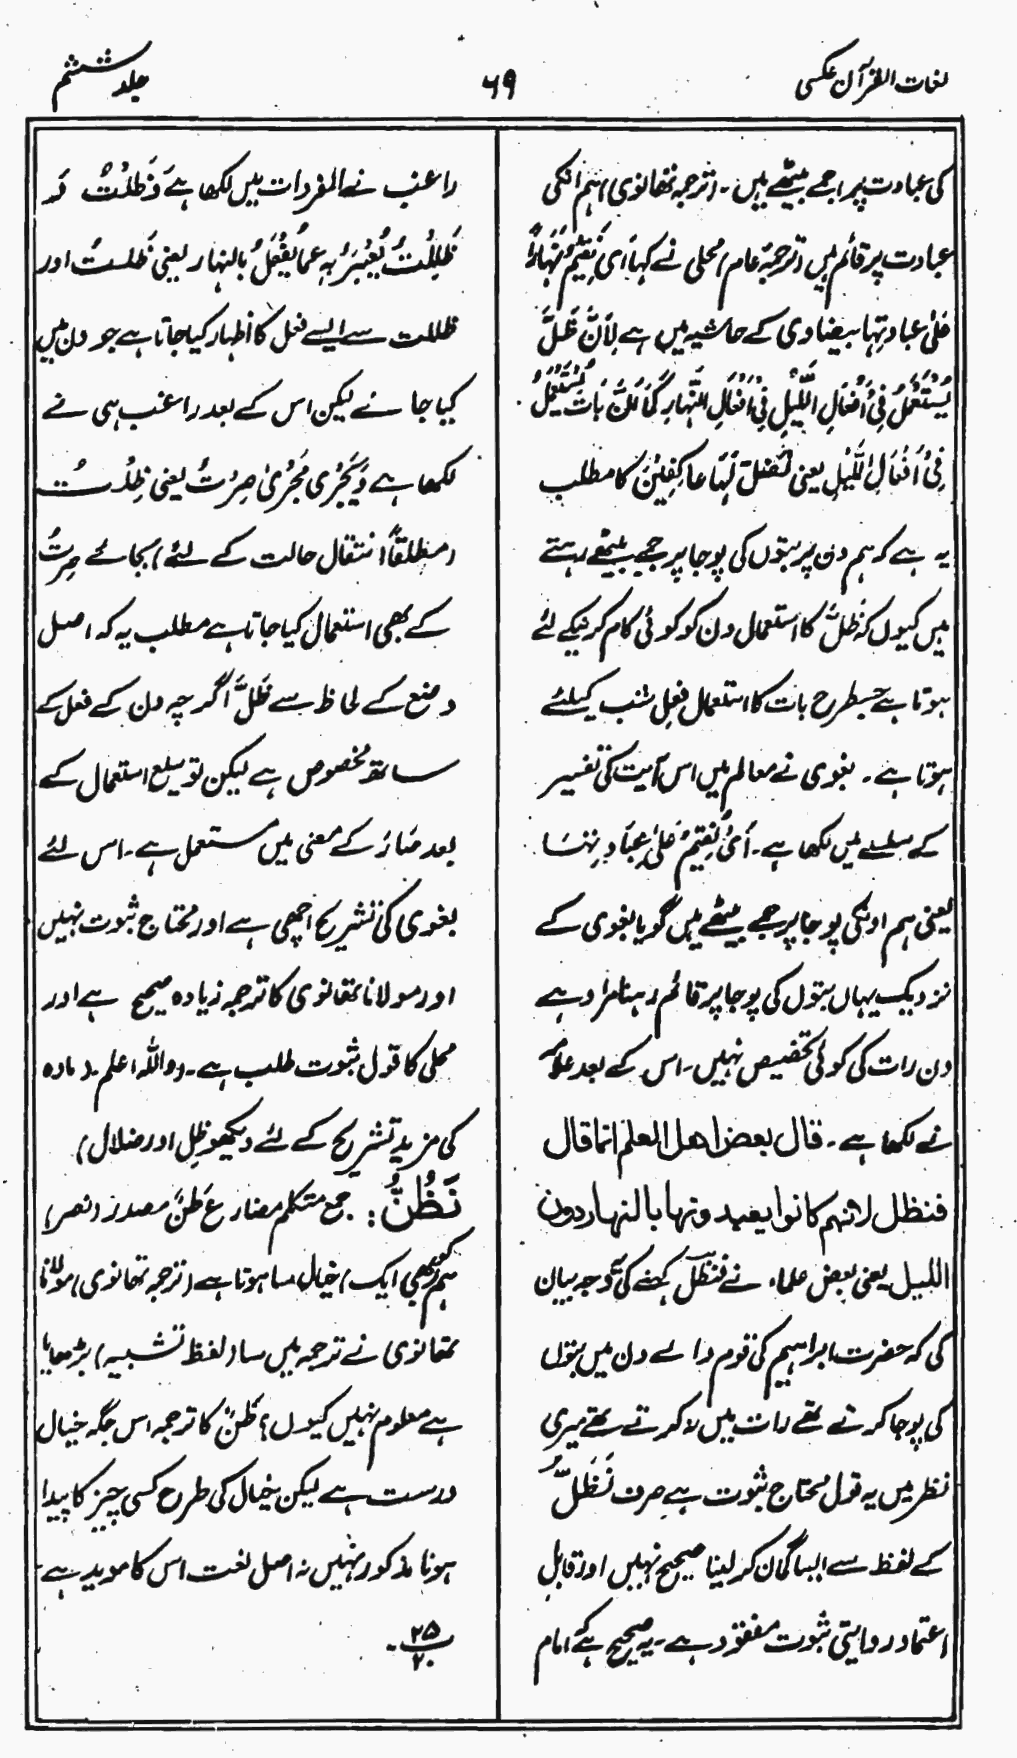 لغات القرآن عکسی
۶۹
جلد ششم
کی عبادت پر جمے بیٹھے ہیں۔ (ترجمہ تھانوی) ہم انکی
عبادت پر قائم ہیں (ترجمۂ عام) محلی نے کہا ای نُقِیْمُ نَہَارًا
عَلیٰ عبادتِہا بیضاوی کے حاشیہ میں ہے لِاَنَّ ظَلَّ
یُسْتَعْمَلُ فِیْ اَفْعَالِ النَّہارِ کَمَا اَنَّ بَاتَ یُسْتَعْمَلُ
فِیْ اَفْعَالِ اللَّیْلِ یعنی لَہَا عَاکِفِیْنَ کا مطلب
یہ ہے کہ ہم دن پر بتوں کی پوجا پر جمے بیٹھے رہتے
ہیں کیوں کہ ظَلَّ کا استعمال دن کو کوئی کام کرنیکے لئے
ہوتا ہے جسطرح بات کا استعمال فعلِ شب کیلئے
ہوتا ہے۔ بغوی نے معالم میں اس آیت کی تفسیر
کے سلسلے میں لکھا ہے۔ اَیْ نُقِیْمُ عَلیٰ عِبَادِتِہَا
یعنی ہم اونکی پوجا پر جمے بیٹھے ہیں گویا بغوی کے
نزدیک یہاں بتوں کی پوجا پر قائم رہنا مراد ہے
دن رات کی کوئی تخصیص نہیں۔ اس کے بعد علامہ
نے لکھا ہے۔ قال بعض اھل العلم انما قال
فنظل لانھم کانوا یعبدونھا بالنھار دون
اللیل یعنی بعض علماء نے فنظل کہنے کی وجہ بیان
کی کہ حضرت ابراہیم کی قوم والے دن میں بتوں
کی پوجا کرتے تھے رات میں نہ کرتے تھے میری
نظر میں یہ قول محتاج ثبوت ہے صرف نَظَلُّ
کے لفظ سے ایسا گمان کر لینا صحیح نہیں اور قابلِ
اعتماد روایتی ثبوت مفقود ہے۔ یہ صحیح ہے کہ امام
راغب نے المفردات میں لکھا ہے وَظَلْتُ وَ
ظَلِلْتُ یُعَبَّرُ بِہٖ عما یُفْعَلُ بالنہار یعنی ظَلْتُ اور
ظللت سے ایسے فعل کا اظہار کیا جاتا ہے جو دن میں
کیا جائے لیکن اس کے بعد راغب ہی نے
لکھا ہے وَیَجْرِی مَجْریٰ صِرْتُ یعنی ظِلْتُ
(مطلقاً انتقال حالت کے لئے) بجائے صِرْتُ
کے بھی استعمال کیا جاتا ہے مطلب یہ کہ اصل
وضع کے لحاظ سے ظَلَّ اگرچہ دن کے فعل کے
ساتھ مخصوص ہے لیکن توسیع استعمال کے
بعد صَارَ کے معنی میں مستعمل ہے۔ اس لئے
بغوی کی تشریح اچھی ہے اور محتاج ثبوت نہیں
اور مولانا تھانوی کا ترجمہ زیادہ صحیح ہے اور
محلی کا قول ثبوت طلب ہے۔ واللہ اعلم۔ (مادہ
کی مزید تشریح کے لئے دیکھو ظِل اور ضلال)
نَظُنُّ: جمع متکلم مضارع ظَنٌّ مصدر (نصر)
ہم کو بھی (ایک) خیال سا ہوتا ہے (ترجمہ تھانوی) مولانا
تھانوی نے ترجمہ میں سا (لفظ تشبیہ) بڑھایا
ہے معلوم نہیں کیوں؟ ظَنٌّ کا ترجمہ اس جگہ خیال
درست ہے لیکن خیال کی طرح کسی چیز کا پیدا
ہونا مذکور نہیں نہ اصل لغت اس کا موید ہے
۲۵
۲۰